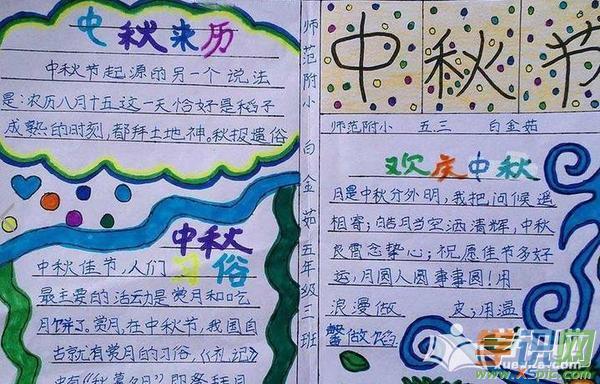 中秋来历
中秋节起源的另一个说法
是:农历八月十五这一天恰好是稻子
成熟的时刻,都拜土地神。秋报遗俗
中秋
习俗
中秋佳节,人们
最主爱的活动是赏月和吃
月饼了。赏月,在中秋节,我国自
古就有赏月的习俗,《礼记》
师范附小 白金茹 五年级三班
中秋节
师范附小 五三 白金茹
欢庆中秋
月是中秋分外明,我把问候遥
相寄;皓月当空洒清辉,中秋
良宵念挚心;祝愿佳节多好
运,月圆人圆事事圆!用
浪漫做 皮;用温
馨做馅
学识网
www.XSpic.com